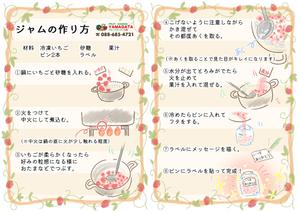 ジャムの作り方
YAMAGATA
☎088-683-4721
材料 冷凍いちご 砂糖 果汁
ビン2本 ラベル
①鍋にいちごと砂糖を入れる。
②火をつけて
中火にして煮込む。
※中火は鍋の底に火が少し触れる程度
③いちごが柔らかくなったら
好みの粒感になる様に
おたまなどでつぶす。
④こげないように注意しながら
かき混ぜて
その都度あくを取る。
※あくを取ることで見た目がキレイになります
⑤水分が出てとろみがでたら
火を止めて
果汁を入れて混ぜる。
⑥冷めたらビンに入れて
フタをする。
⑦ラベルにメッセージを描く。
⑧ビンにラベルを貼って完成!